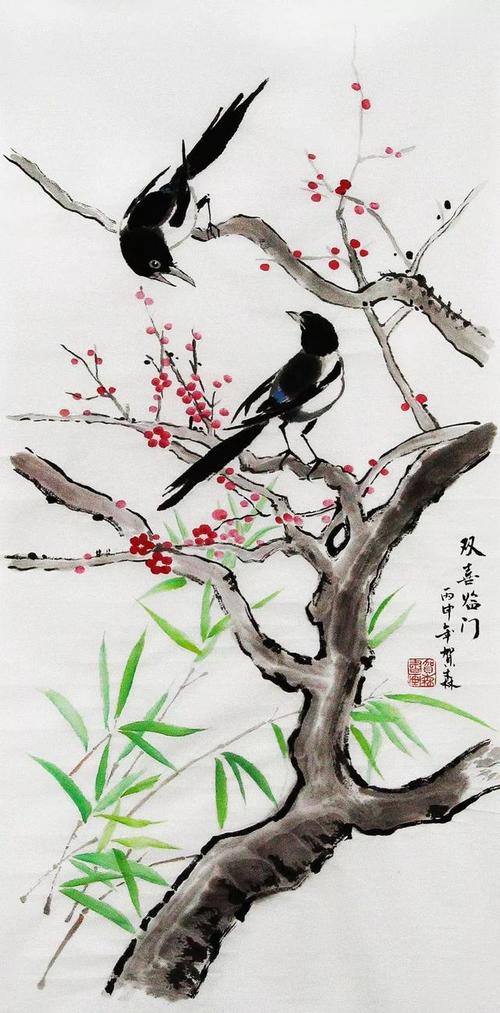 双喜临门
丙申年贺森